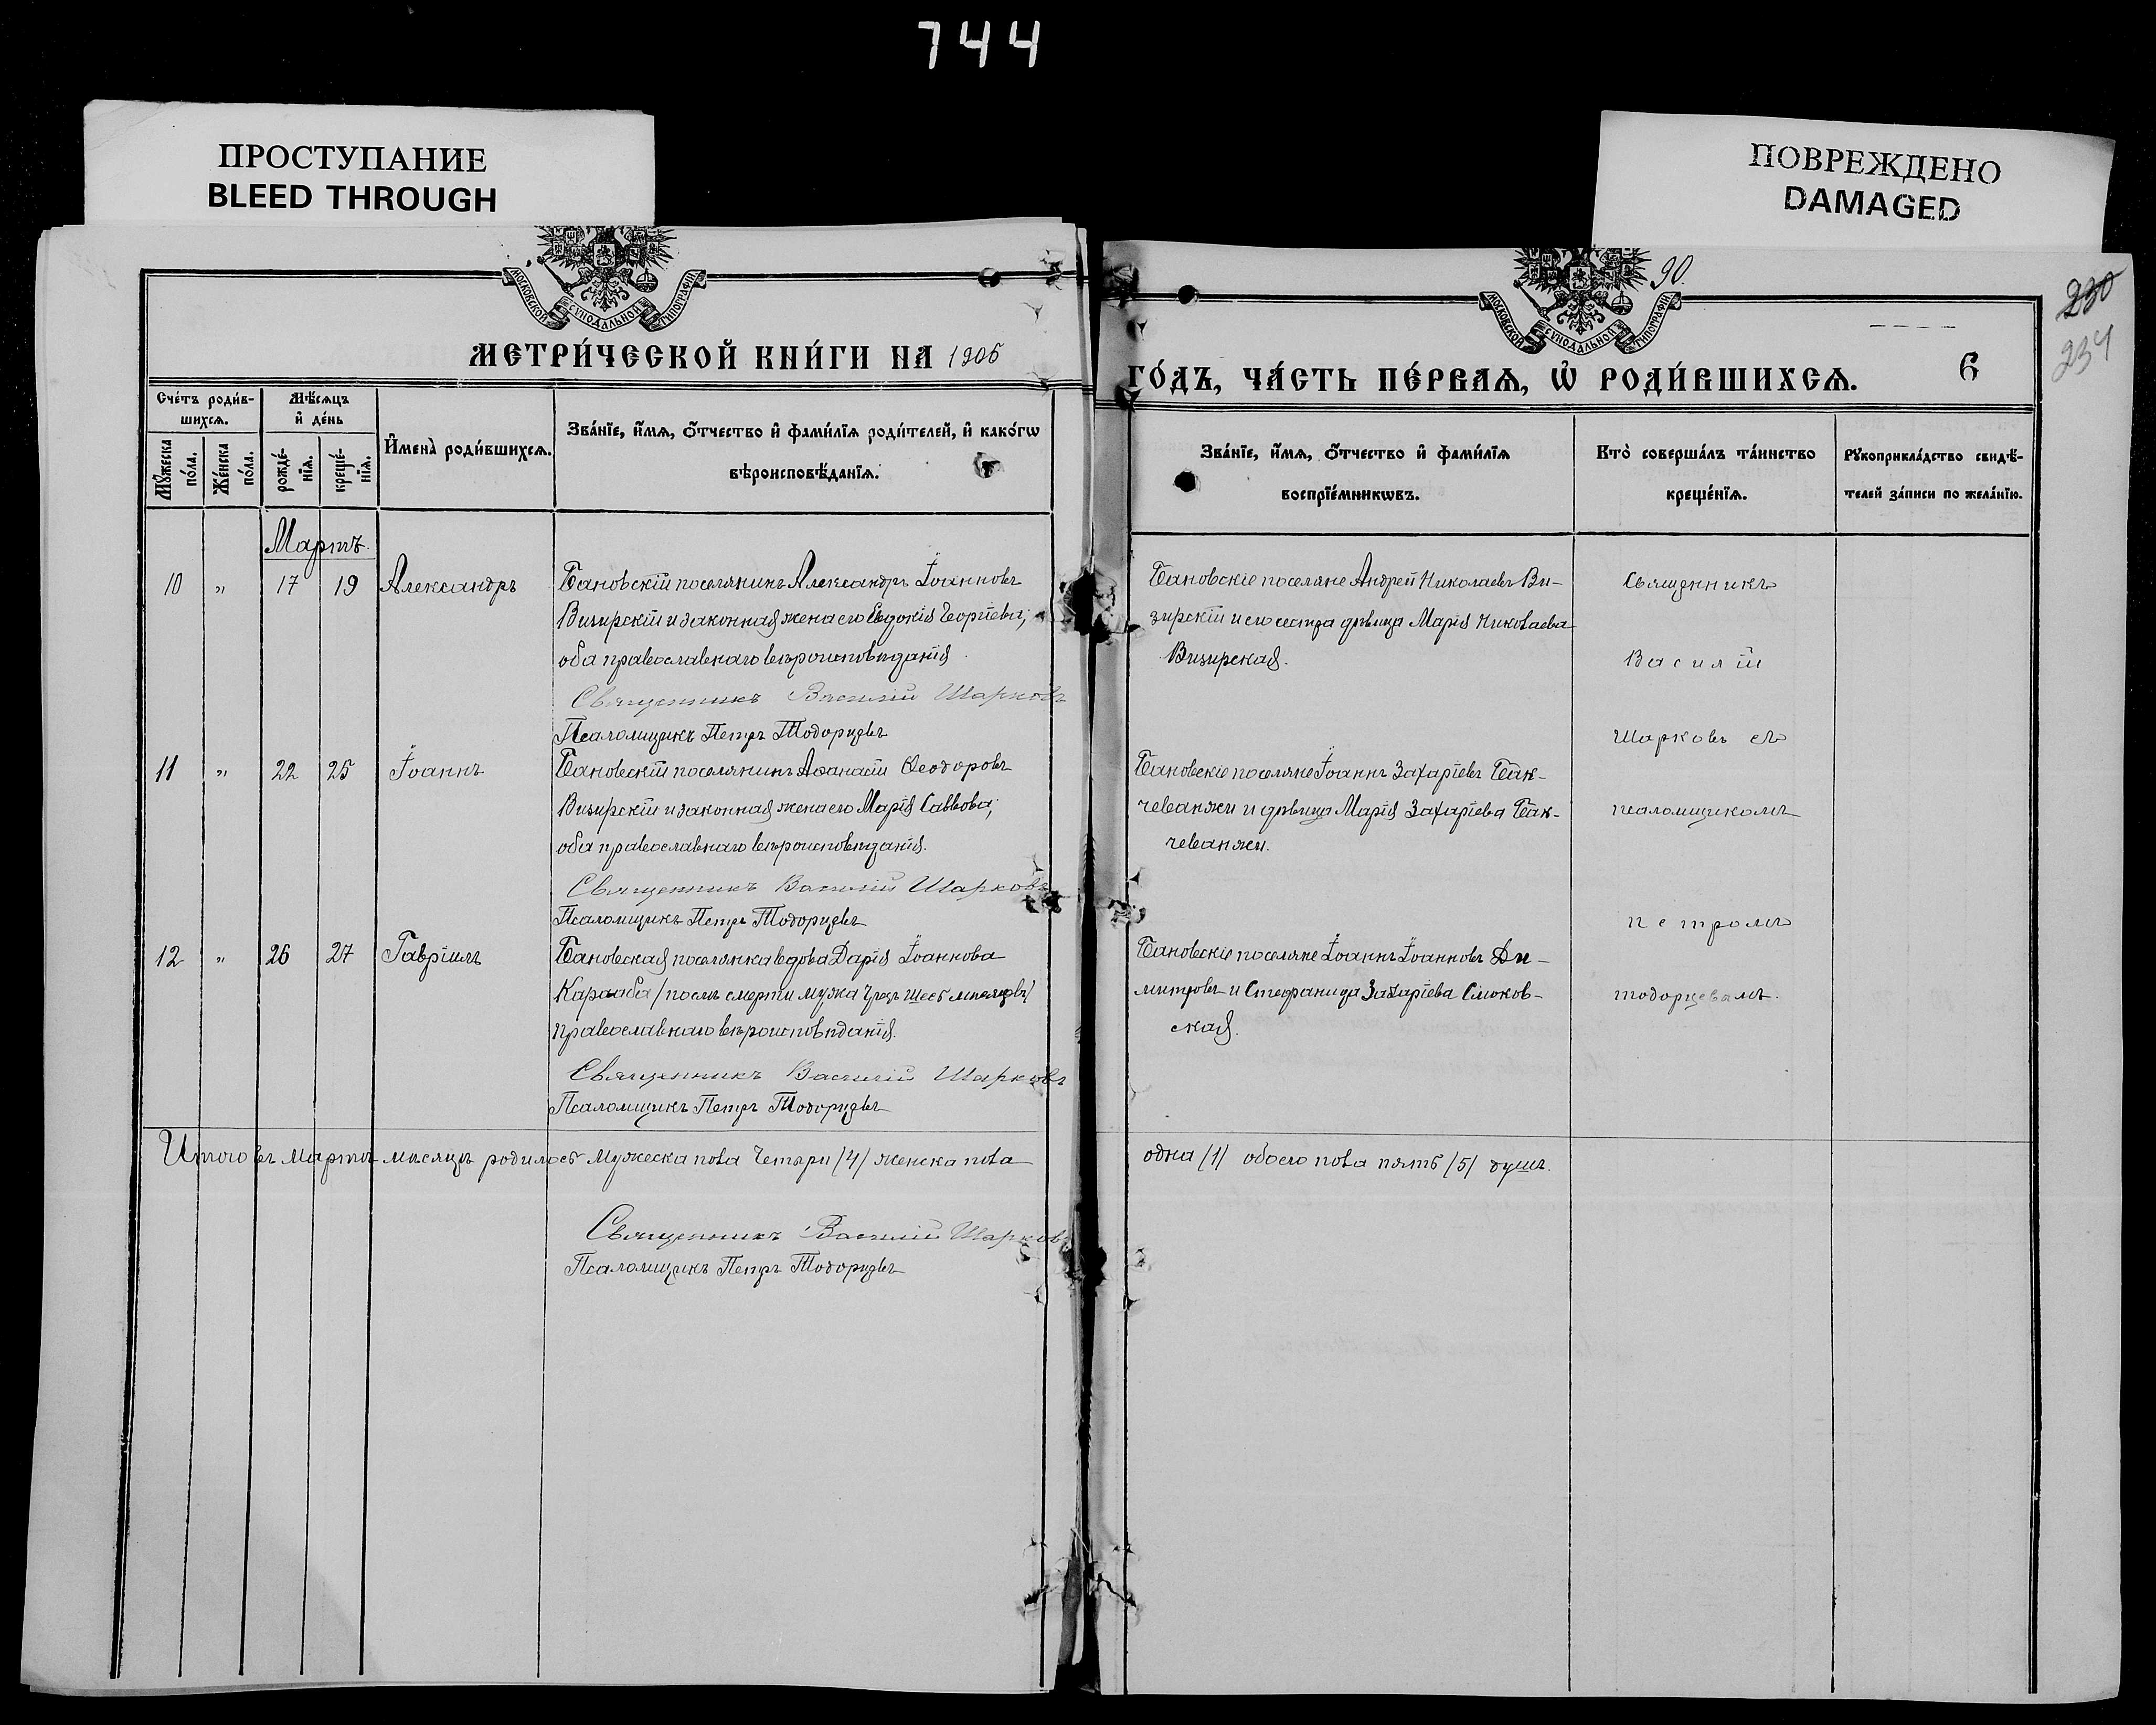 744
ПРОСТУПАНИЕ
BLEED THROUGH
ПОВРЕЖДЕНО
DAMAGED
МОСКОВСКОЙ СУНОДАЛЬНОЙ ТИПОГРАФІИ
МОСКОВСКОЙ СУНОДАЛЬНОЙ ТИПОГРАФІИ
90.
230
234
МЕТРИ́ЧЕСКОЙ КНИ́ГИ НА 1906
ГО́ДЪ, ЧА́СТЬ ПЕ́РВАЯ, Ѡ҆ РОДИ́ВШИХСЯ.
6
Сче́тъ роди́в-
шихся.
Му́жеска по́ла.
Же́нска по́ла.
Мѣ́сяцъ
и҆ де́нь
рожде́-
нїя.
креще́-
нїя.
И҆мена̀ роди́вшихся.
Зва́нїе, и҆́мя, ѻ҆́тчество и҆ фами́лїя роди́телей, и҆ како́гѡ
вѣроисповѣ́данїя.
Зва́нїе, и҆́мя, ѻ҆́тчество и҆ фами́лїя
воспрїе́мникѡвъ.
Кто̀ соверша́лъ та́инство
креще́нїя.
Рꙋкоприкла́дство свидѣ́-
телей за́писи по жела́нїю.
Мартъ.
10 „ 17 19 Александръ
Бановскій поселянинъ Александръ Іоанновъ
Визирскій и законная жена его Евдокія Георгіева,
оба православнаго вѣроисповѣданія.
Священникъ Василій Шарковъ
Псаломщикъ Петръ Тодорцевъ
Бановскіе поселяне Андрей Николаевъ Ви-
зирскій и его сестра дѣвица Марія Николаева
Визирская.
11 „ 22 25 Іоаннъ
Бановскій поселянинъ Аѳанасій Ѳеодоровъ
Визирскій и законная жена его Марія Саввова,
оба православнаго вѣроисповѣданія.
Священникъ Василій Шарковъ
Псаломщикъ Петръ Тодорцевъ
Бановскіе поселяне Іоаннъ Захаріевъ Бак-
чеванжи и дѣвица Марія Захаріева Бак-
чеванжи.
12 „ 26 27 Гавріилъ
Бановская поселянка вдова Дарія Іоаннова
Караába /послѣ смерти мужа чрезъ шесть мѣсяцевъ/
православнаго вѣроисповѣданія.
Священникъ Василій Шарковъ
Псаломщикъ Петръ Тодорцевъ
Бановскіе поселяне Іоаннъ Іоанновъ Ди-
митровъ и Стефанида Захаріева Смоков-
ская.
Священникъ
Василій
Шарковъ съ
псаломщикомъ
Петромъ
Тодорцевымъ.
Итого въ мартѣ мѣсяцѣ родилось мужеска пола четыри /4/ женска пола
одна /1/ обоего пола пять /5/ душъ.
Священникъ Василій Шарковъ
Псаломщикъ Петръ Тодорцевъ